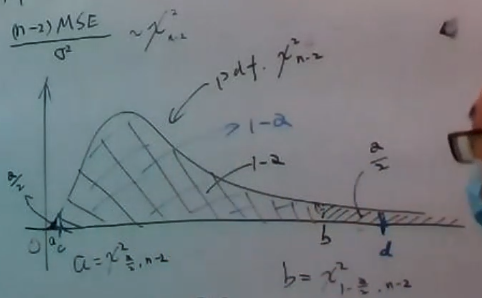 (n-2) MSE / σ² ~ χ²n-2
pdf. χ²n-2
1-α
1-α
α/2
α/2
0 a c b d
a = χ²α/2, n-2
b = χ²1-α/2, n-2